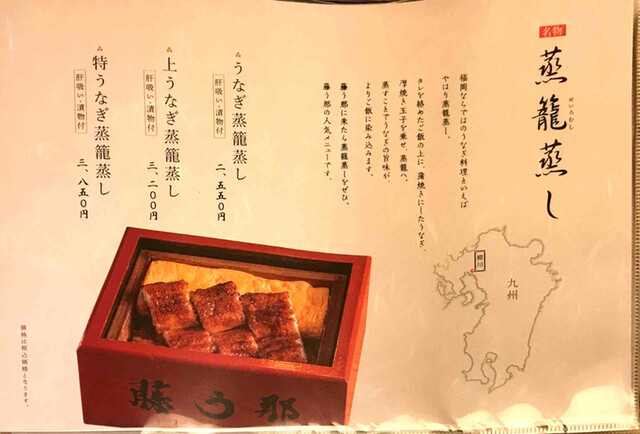 名物
蒸籠蒸し
せいろむし
福岡ならではのうなぎ料理といえば
やはり蒸籠蒸し。
タレを絡めたご飯の上に、蒲焼きにしたうなぎ、
厚焼き玉子を乗せ、蒸籠へ。
蒸すことでうなぎの旨味が、
よりご飯に染み込みます。
藤う那に来たら蒸籠蒸しをぜひ。
藤う那の人気メニューです。
うなぎ蒸籠蒸し
肝吸い・漬物付
二、五五〇円
上うなぎ蒸籠蒸し
肝吸い・漬物付
三、二〇〇円
特うなぎ蒸籠蒸し
肝吸い・漬物付
三、八五〇円
柳川
九州
藤う那
価格は税込価格となります。